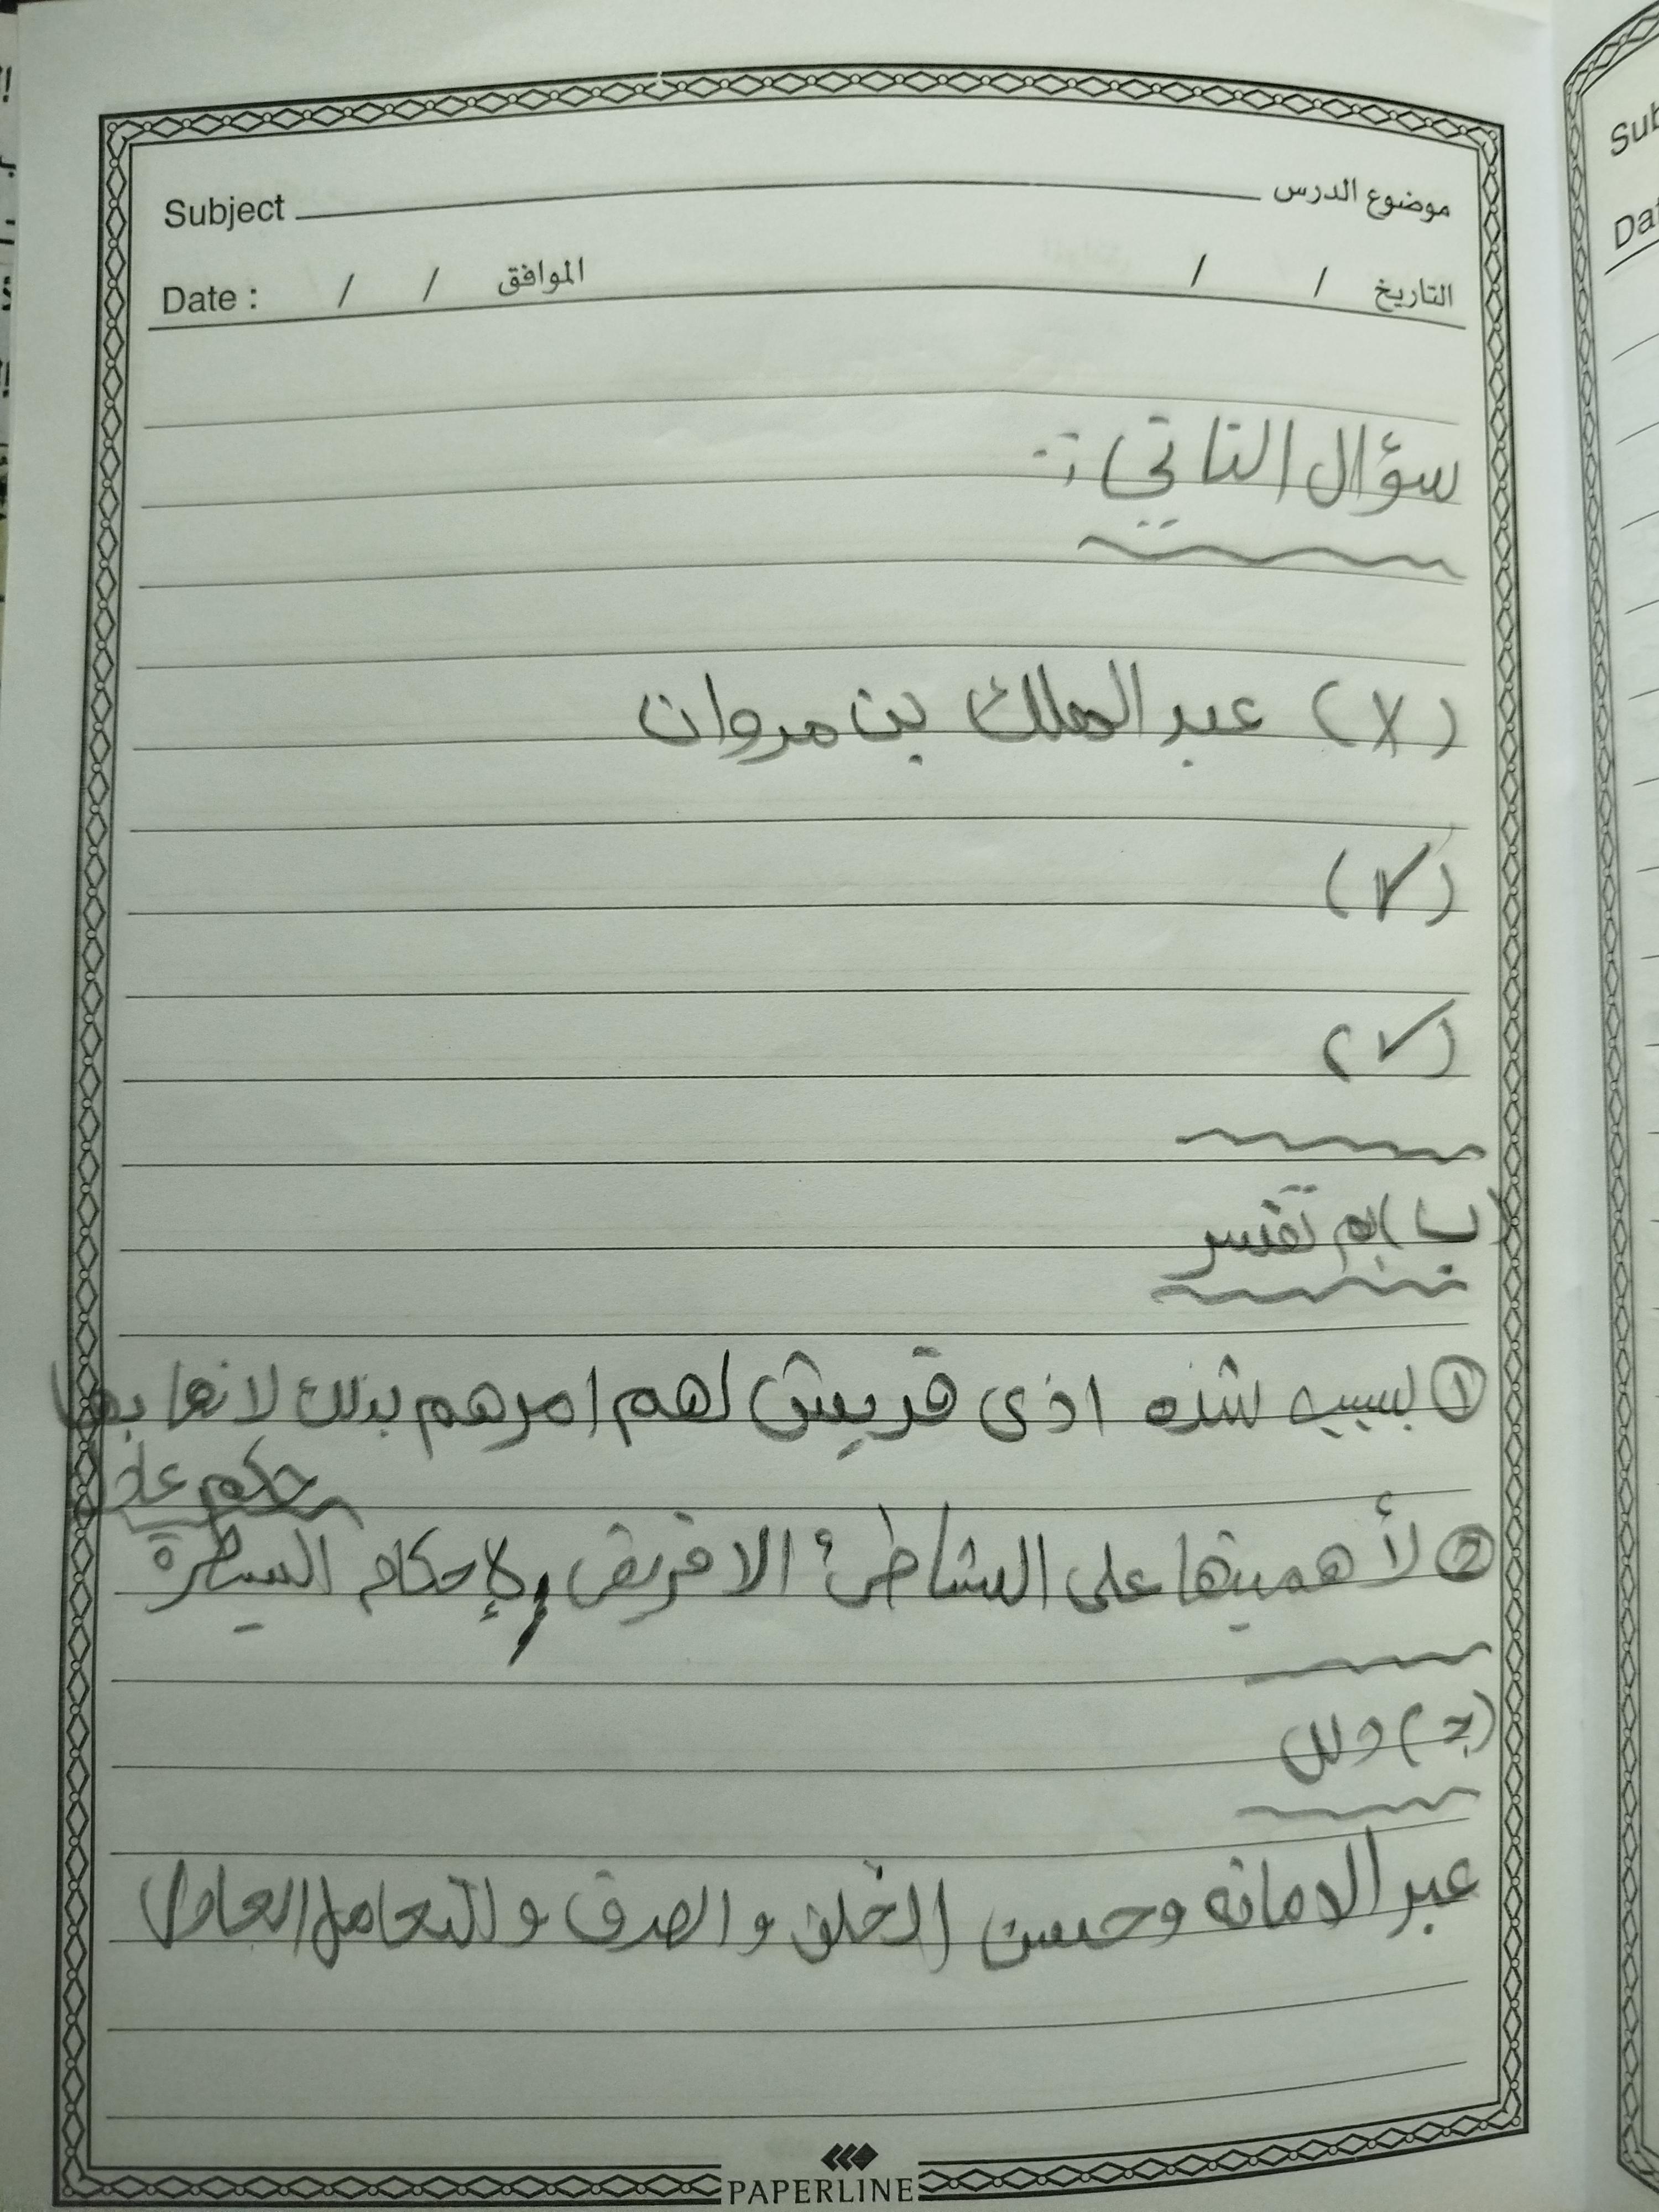 موضوع الدرس Subject
التاريخ / / الموافق / / Date :
سؤال التاني :-
(X) عبد الملك بن مروان
(✓)
(✓)
(ب) بم تفسر
① لسبب شده اذى قريش لهم امرهم بذلك لانها بها
حكم عادل
② لأهميتها على الشاطئ الافريقى ولإحكام السيطرة
(ج) دلل
عبر الامانه وحسن الخلق و الصدق و التعامل العادل
PAPERLINE